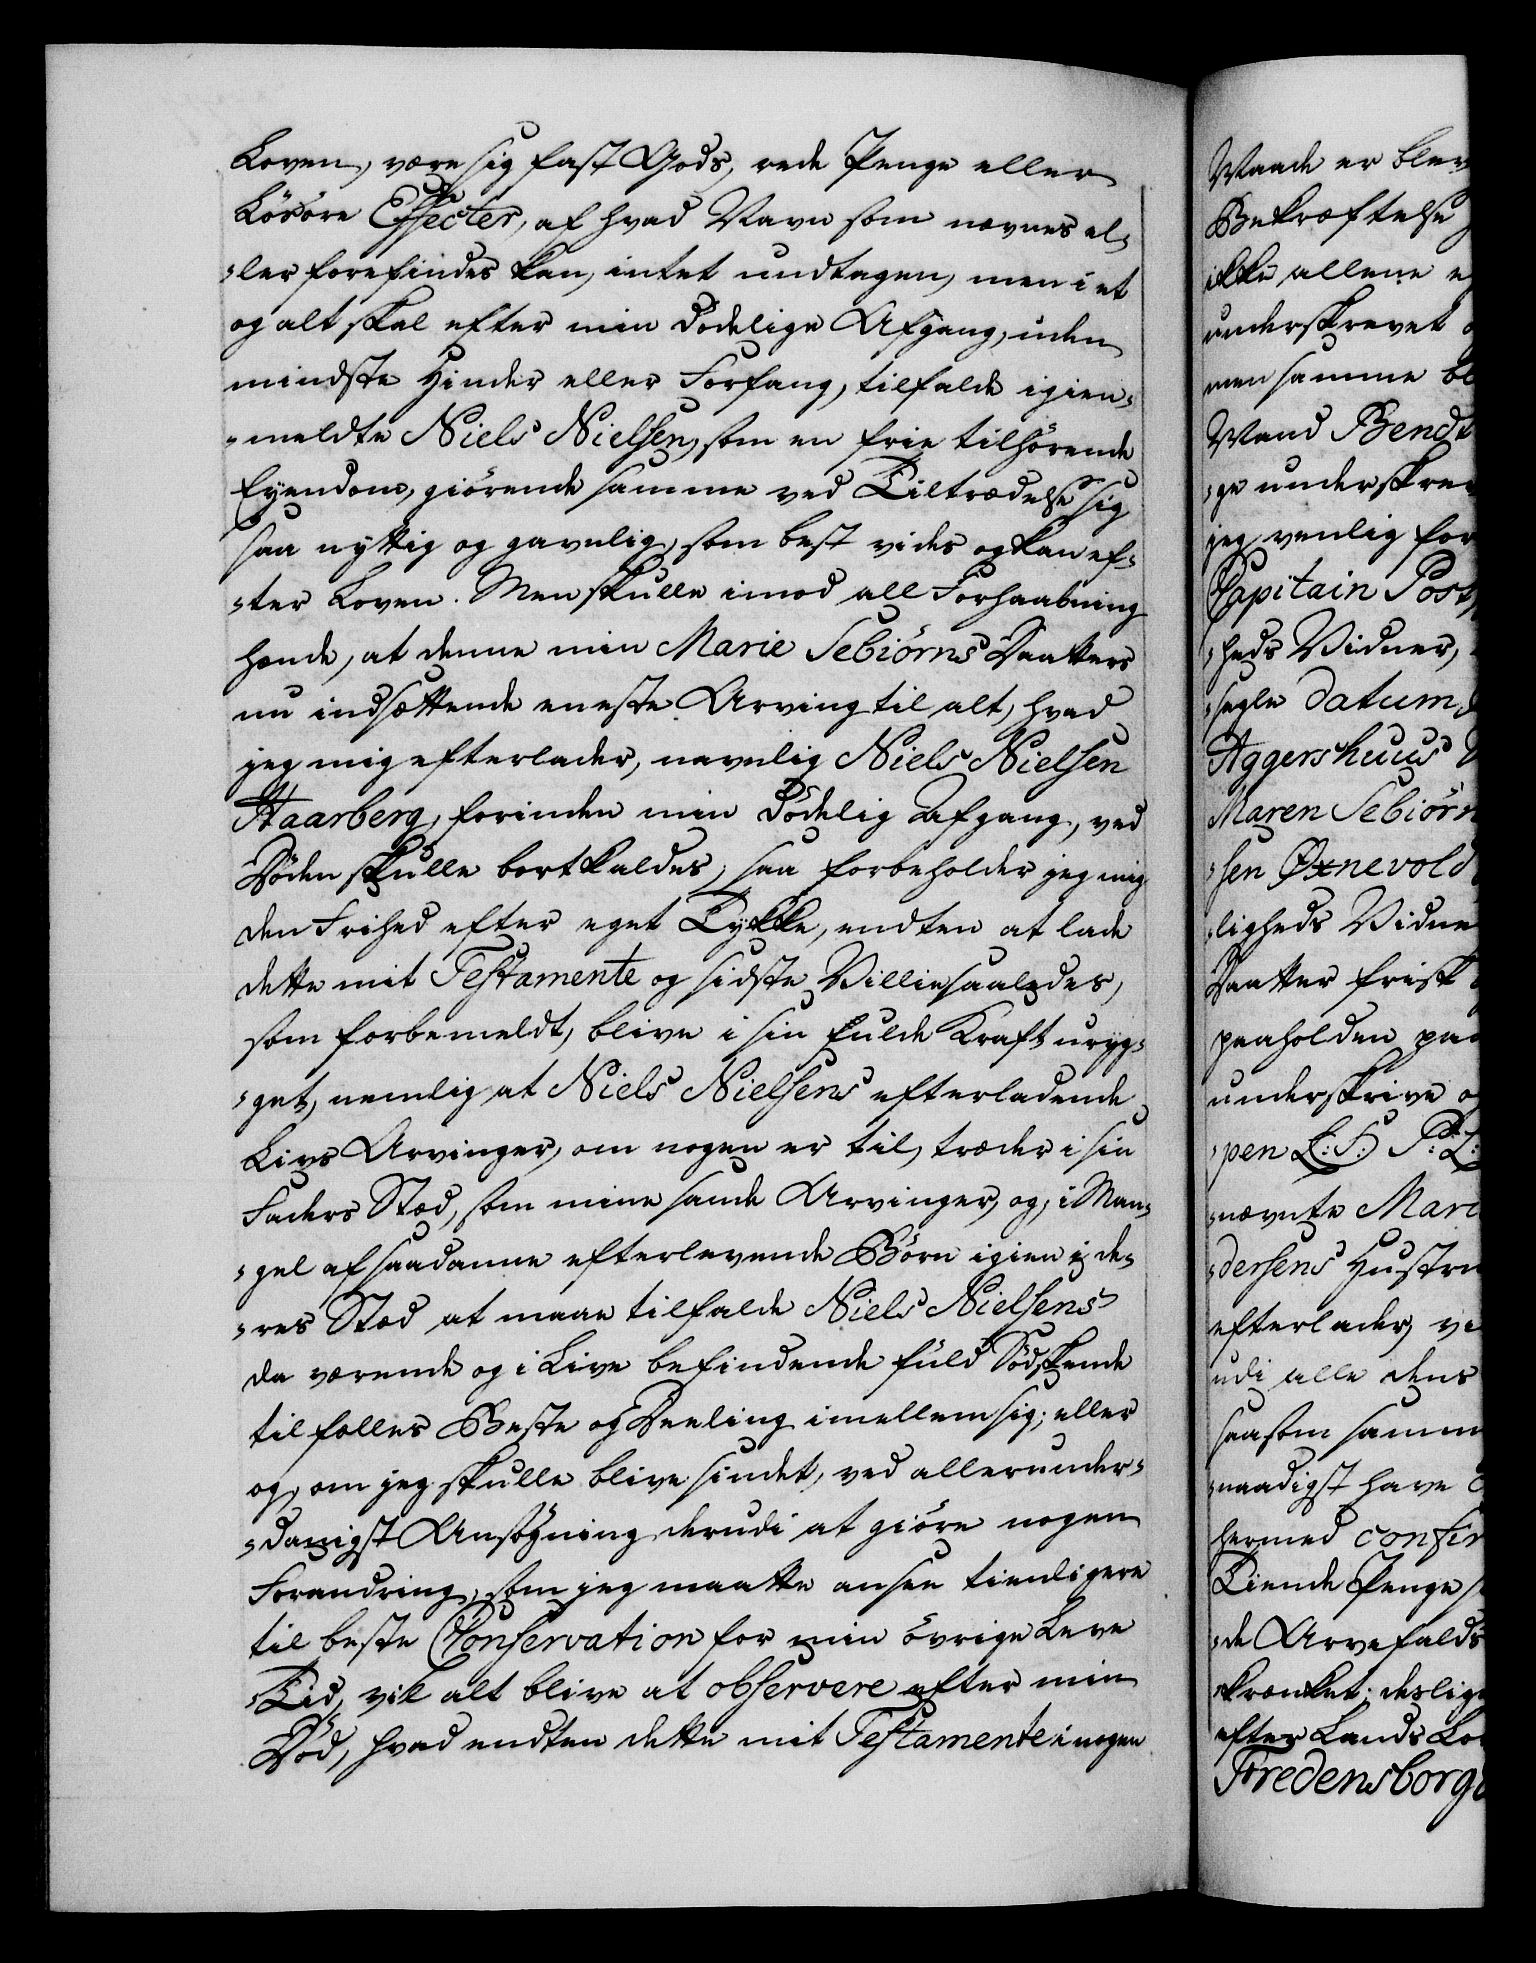 Loven, være sig fast Gods, rede Penge eller
Løsøre Effecter, af hvad Navn som nævnes el-
-ler forefindes kan, intet undtagen, men i et
og alt skal efter min dødelige Afgang, uden
mindste Hinder eller Forfang, tilfalde igien-
-meldte Niels Nielsen, som en frie tilhørende
Eyendom, giørende samme ved Tiltrædelse sig
saa nyttig og gavnlig, som best vides og kan ef-
-ter Loven. Men skulle imod all Forhaabning
hænde, at denne min Marie Sebiørns Daatters
nu indsættende eneste Arving til alt, hvad
jeg mig efterlader, navnlig Niels Nielsen
Haarberg, forinden min dødelig Afgang, ved
Døden skulle bortkaldes, saa forbeholder jeg mig
den Frihed efter eget Tykke, endten at lade
dette mit Testamente og sidste Villie saaledes,
som forbemeldt, blive i sin fulde Kraft uryg-
-get, nemlig at Niels Nielsens efterladende
Livs Arvinger, om nogen er til, træder i sin
Faders Stæd, som mine sande Arvinger, og, i Man-
-gel af saadanne efterlevende Børn igien i de-
-res Stæd at maae tilfalde Niels Nielsens
da værende og i Live befindende fuld Sødskende
til fælles Beste og Deeling imellem sig; eller
og, om jeg skulle blive sindet, ved allerunder-
-danigst Ansøgning derudi at giøre nogen
Forandring, som jeg maatte ansee tienligere
til beste Conservation for min øvrige Leve
-Tid, vil alt blive at observere efter min
Død, hvad endten dette mit Testamente i nogen
Maade er blev
Bekræftelse
ikke allene
underskrevet
men samme
Mand Bendt
-ge underskre
jeg venlig for
Capitain Post
-heds Vidner,
-segle datum
Aggershuus
Maren Sebiørn
-sen Øxnevold
-ligheds Vidne
Daatter frisk
paaholden pen
underskrive
-pen L:S:
-nævnte Mari
-dersens Hustru
efterlader,
udi alle dens
saasom samm
-naadigst have
hermed confir
Tiende Penge
-de Arvefalds
-krænket; deslige
efter Lands Lo
Fredensborg